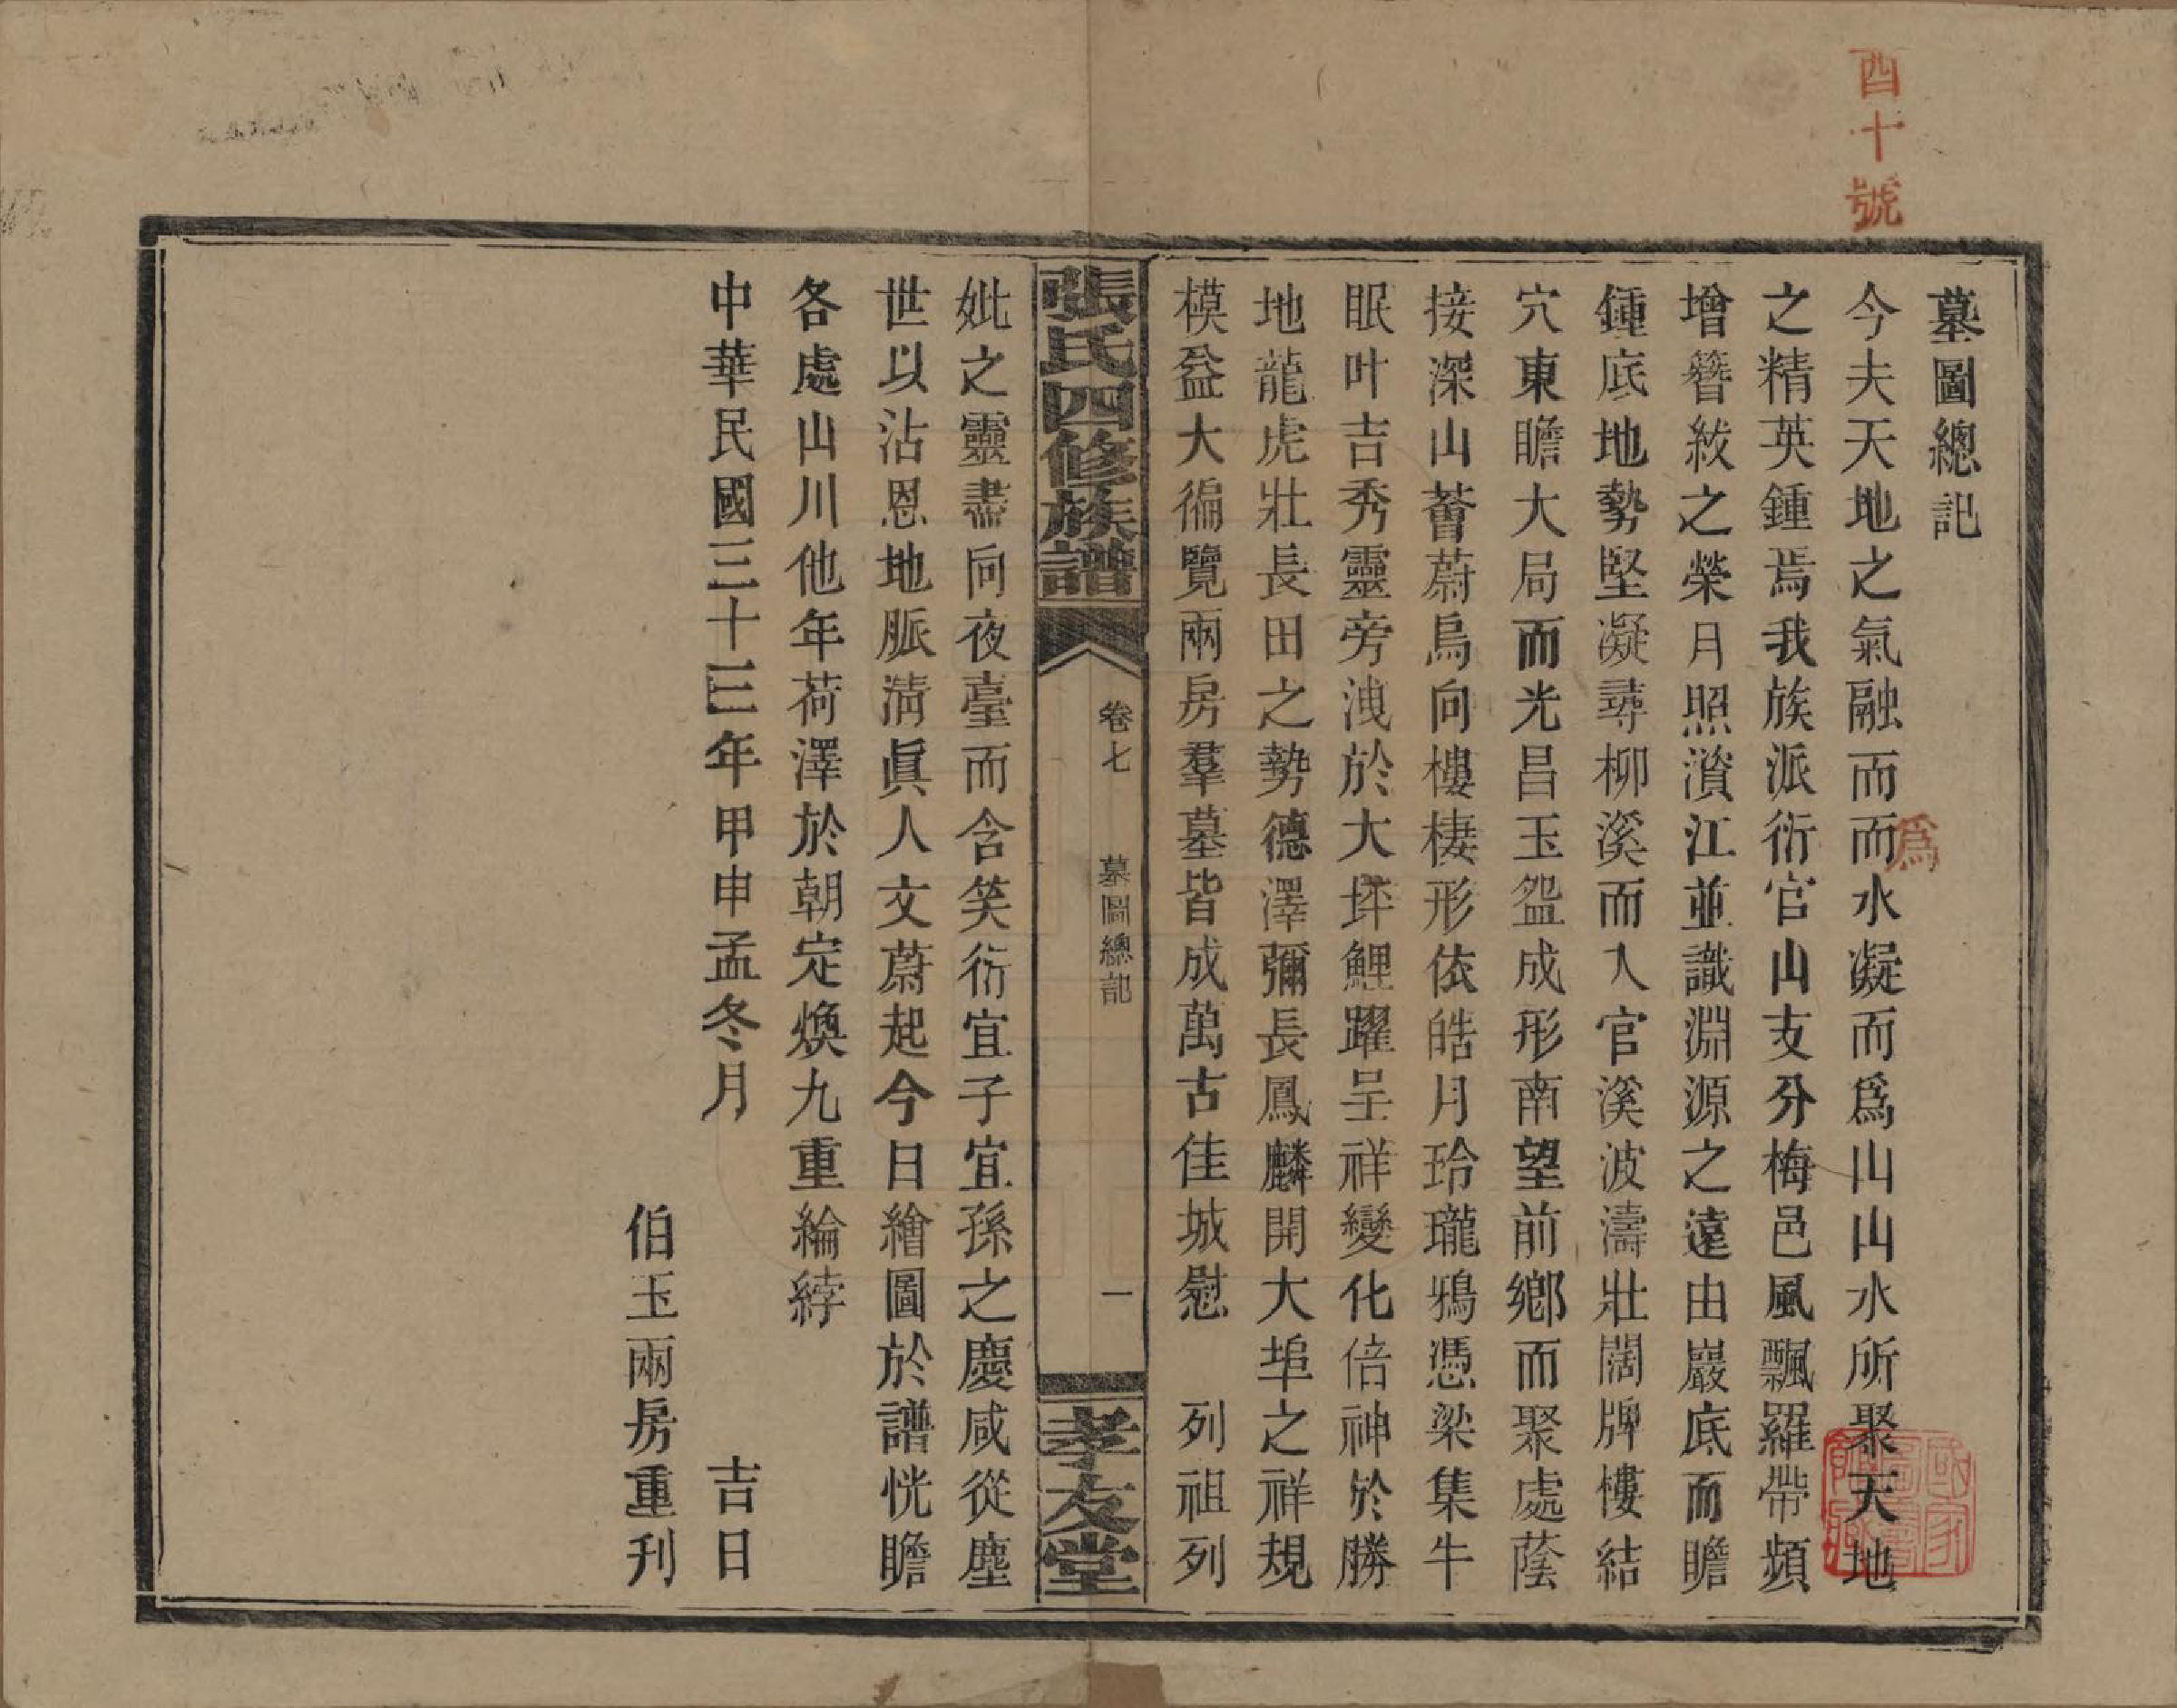 四十號
墓圖總記
今夫天地之氣融而而水凝而爲山山水所聚天地
爲
之精英鍾焉我族派衍官山支分梅邑風飄羅帶頻
增簪紱之榮月照濱江並識淵源之遠由巖底而瞻
鍾底地勢堅凝尋柳溪而入官溪波濤壯闊牌樓結
穴東瞻大局而光昌玉盌成形南望前鄉而聚處蔭
接深山薈蔚烏向樓棲形依皓月玲瓏鴉憑梁集牛
眠叶吉秀靈旁洩於大坪鯉躍呈祥變化倍神於勝
地龍虎壯長田之勢德澤彌長鳳麟開大埠之祥規
模益大徧覽兩房羣墓皆成萬古佳城慰 列祖列
張氏四修族譜
卷七 墓圖總記 一
孝友堂
妣之靈盡向夜臺而含笑衍宜子宜孫之慶咸從塵
世以沾恩地脈淸眞人文蔚起今日繪圖於譜恍瞻
各處山川他年荷澤於朝定煥九重綸綍
中華民國三十三年甲申孟冬月 吉日
伯玉兩房重刊
國家圖書館藏